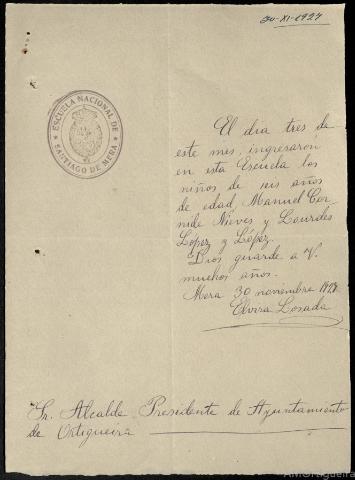 30-XI-1927
ESCUELA NACIONAL DE
SANTIAGO DE MERA
El día tres de
este mes, ingresaron
en esta Escuela los
niños de seis años
de edad, Manuel Cor
nide Nieves y Lourdes
López y López.
Dios guarde a V.
muchos años.
Mera 30 noviembre 1927
Elvira Losada
Sr. Alcalde Presidente de Ayuntamiento
de Ortigueira
AMOrtigueira